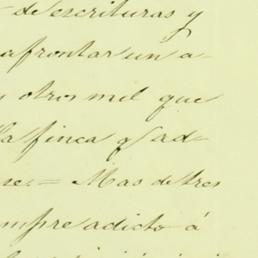 de escrituras y
afrontar un a-
y otros mil que
la finca q/ ad-
se.= Mas de tres
empre adicto á